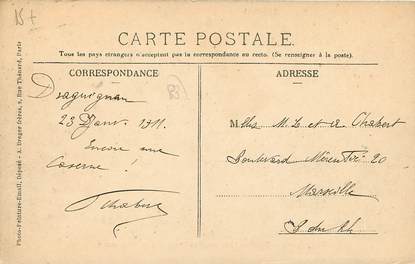 15 +
CARTE POSTALE.
Tous les pays étrangers n'acceptent pas la correspondance au recto. (Se renseigner à la poste).
CORRESPONDANCE
ADRESSE
Draguignan
83
23 Janv. 1911.
Encore une
Caserne !
Chabert
Melles M. L. et A Chabert
Boulevard 20
Marseille
B du Rh
Photo-Peinture-Email, Déposé - A. Breger frères, 9, Rue Thénard, Paris